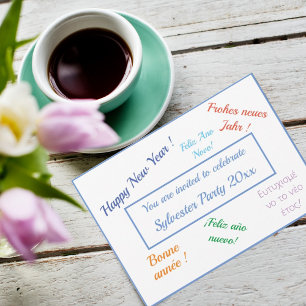 Frohes neues
Jahr !
Feliz Ano
Novo!
Happy New Year !
You are invited to celebrate
Sylvester Party 20xx
Ευτυχισμέ
νο το νέο
έτος!
¡Feliz año
nuevo!
Bonne
année !